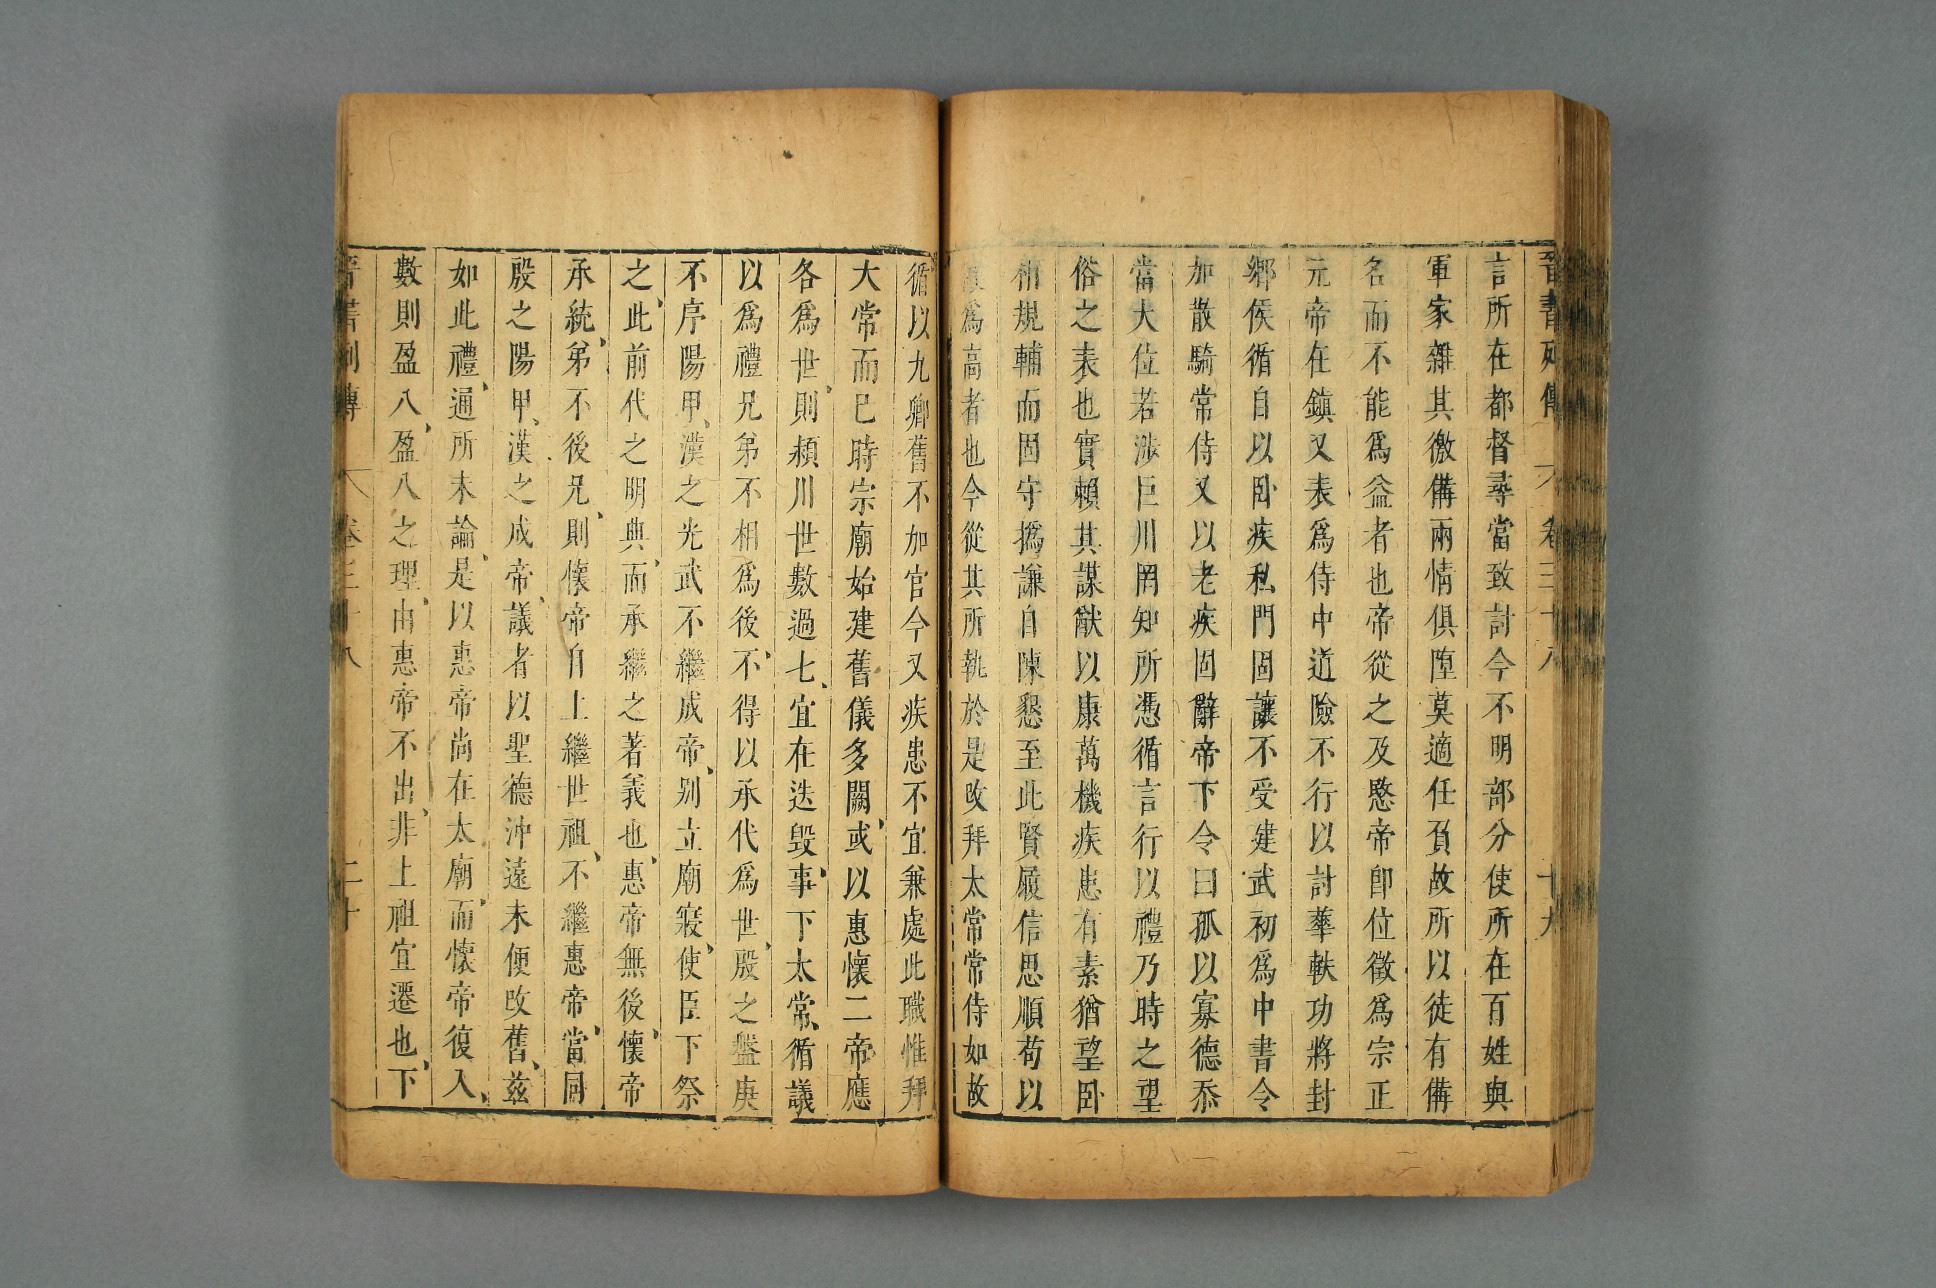 晉書列傳 卷三十八 十九
言所在都督尋當致討今不明部分使所在百姓與
軍家雜其徼備兩情俱墮莫適任負故所以徒有備
名而不能爲益者也帝從之及愍帝卽位徵爲宗正
元帝在鎮又表爲侍中道險不行以討華軼功將封
鄉侯循自以卧疾私門固讓不受建武初爲中書令
加散騎常侍又以老疾固辭帝下令曰孤以寡德忝
當大位若涉巨川罔知所憑循言行以禮乃時之望
俗之表也實賴其謀猷以康萬機疾患有素猶望卧
相規輔而固守撝謙自陳懇至此賢履信思順苟以
讓爲高者也今從其所執於是改拜太常常侍如故
循以九卿舊不加官今又疾患不宜兼處此職惟拜
大常而已時宗廟始建舊儀多闕、或以惠懷二帝應
各爲世、則潁川世數過七、宜在迭毀、事下太常、循議
以爲禮兄弟不相爲後、不得以承代爲世、殷之盤庚
不序陽甲、漢之光武不繼成帝、別立廟寢、使臣下祭
之、此前代之明典、而承繼之著義也、惠帝無後、懷帝
承統、弟不後兄、則懷帝自上繼世祖、不繼惠帝、當同
殷之陽甲、漢之成帝、議者以聖德沖遠未便改舊、茲
如此禮、通所未論、是以惠帝尚在太廟、而懷帝復入、
數則盈八、盈八之理、由惠帝不出、非上祖宜遷也、下
晉書列傳 卷三十八 二十